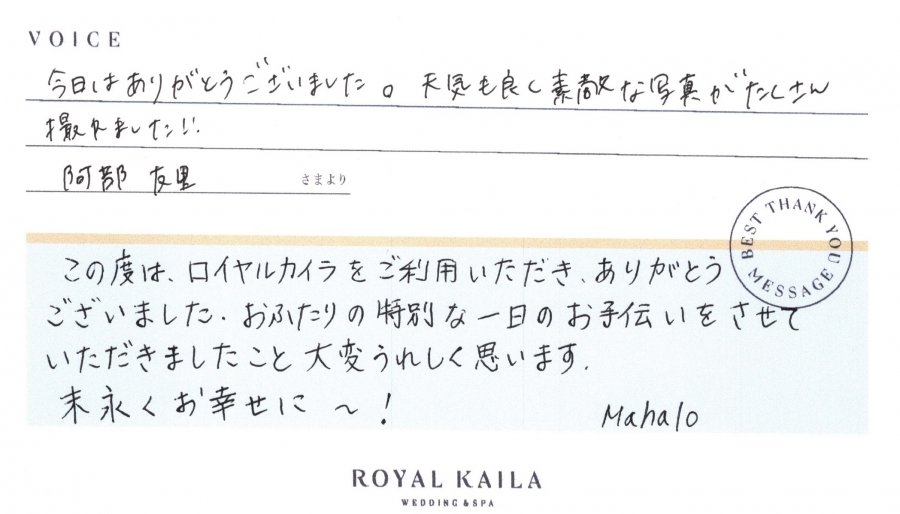 VOICE
今日はありがとうございました。天気も良く素敵な写真がたくさん
撮れました!!
阿部 友里 さまより
BEST THANK YOU MESSAGE
この度は、ロイヤルカイラをご利用いただき、ありがとう
ございました.おふたりの特別な一日のお手伝いをさせて
いただきましたこと大変うれしく思います.
末永くお幸せに〜!
Mahalo
ROYAL KAILA
WEDDING & SPA